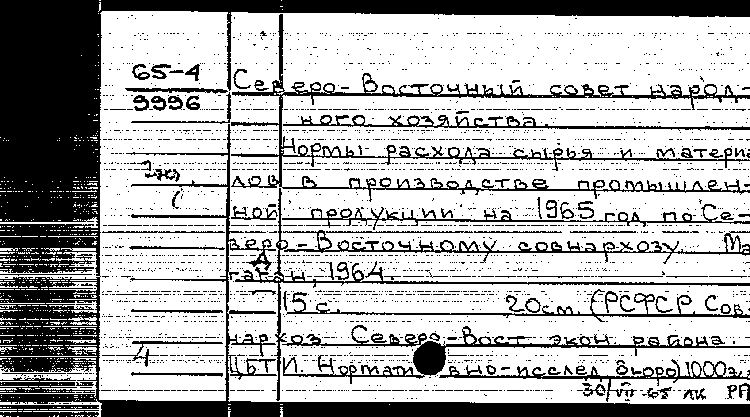 65-4
9996
Северо-Восточный совет народ-
ного хозяйства.
Нормы расхода сырья и материа
лов в производстве промышлен-
ной продукции на 1965 год по Се-
веро-Восточному совнархозу. Ма
гадан, 1964.
15 с. 20см. (РСФСР. Сов.
нархоз Северо-Вост. экон. района.
4
ЦБТИ. Нормативно-исслед. бюро) 1000э.
30/VII-65 ЛК РП